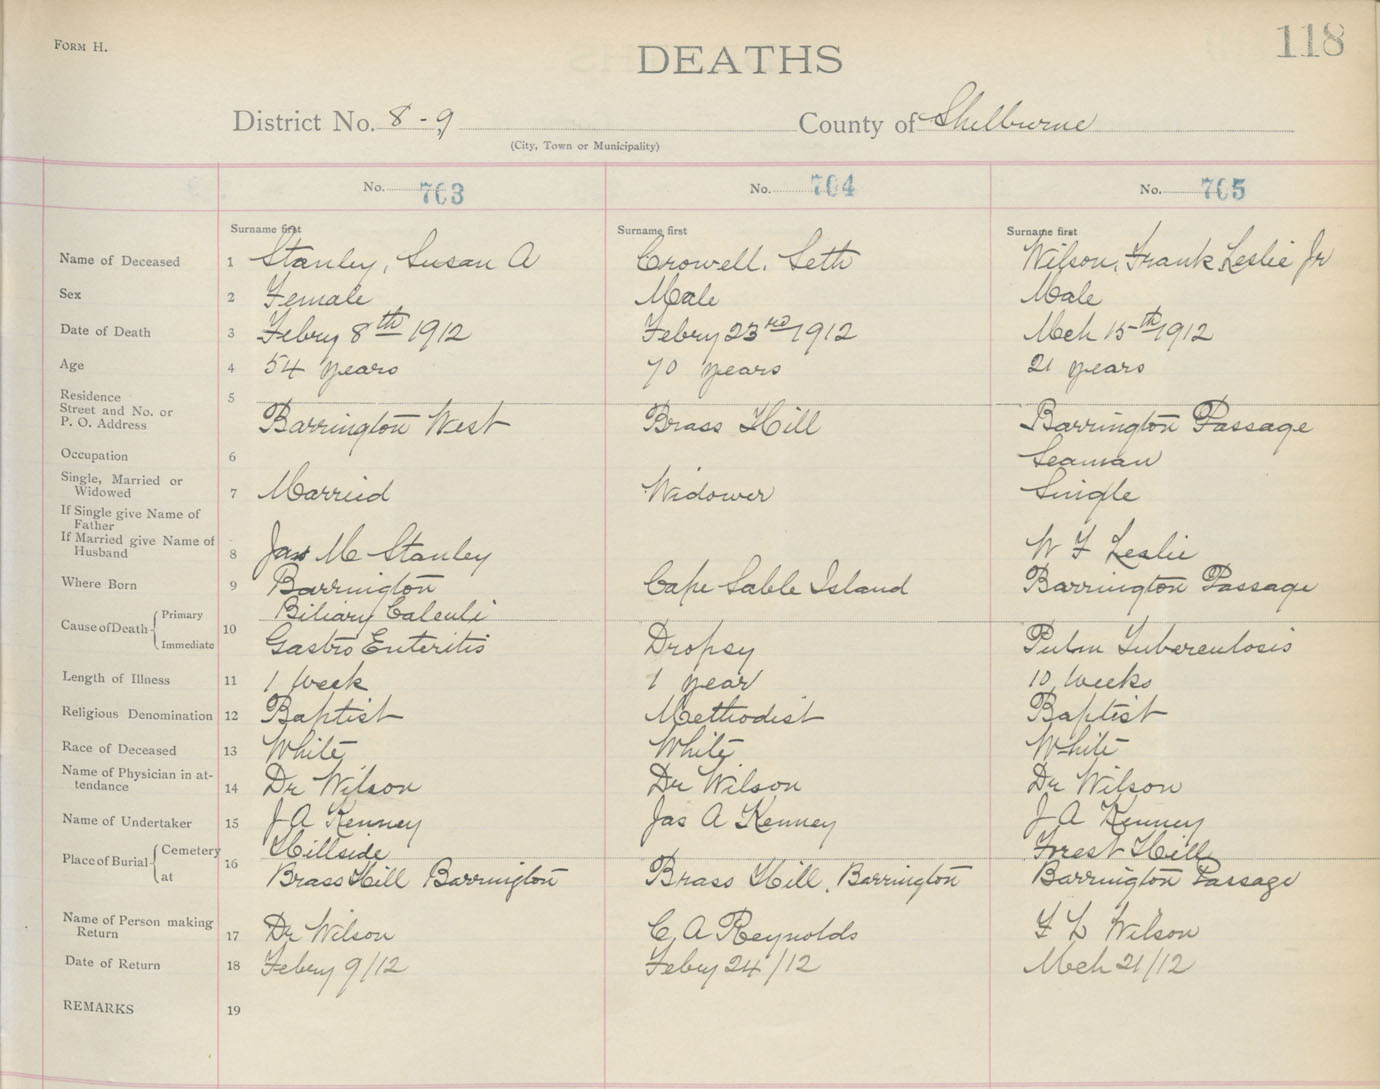 Form H.
118
DEATHS
District No. 8-9 County of Shelburne
(City, Town or Municipality)
No. 703 No. 704 No. 705
Surname first Surname first Surname first
Name of Deceased 1 Stanley, Susan A Crowell, Seth Wilson, Frank Leslie Jr
Sex 2 Female Male Male
Date of Death 3 Febry 8th 1912 Febry 23rd 1912 Mch 15th 1912
Age 4 54 years 70 years 21 years
Residence 5
Street and No. or
P. O. Address Barrington West Brass Hill Barrington Passage
Occupation 6 Seaman
Single, Married or
Widowed 7 Married Widower Single
If Single give Name of
Father
If Married give Name of
Husband 8 Jas M Stanley W F Leslie
Where Born 9 Barrington Cape Sable Island Barrington Passage
Cause of Death Primary 10 Biliary Calculi
Immediate Gastro Enteritis Dropsy Pulm Tuberculosis
Length of Illness 11 1 Week 1 year 10 weeks
Religious Denomination 12 Baptist Methodist Baptist
Race of Deceased 13 White White White
Name of Physician in at-
tendance 14 Dr Wilson Dr Wilson Dr Wilson
Name of Undertaker 15 J A Kenney Jas A Kenney J A Kenney
Place of Burial Cemetery 16 Hillside Forest Hill
at Brass Hill Barrington Brass Hill, Barrington Barrington Passage
Name of Person making
Return 17 Dr Wilson C A Reynolds F L Wilson
Date of Return 18 Febry 9/12 Febry 24/12 Mch 21/12
REMARKS 19